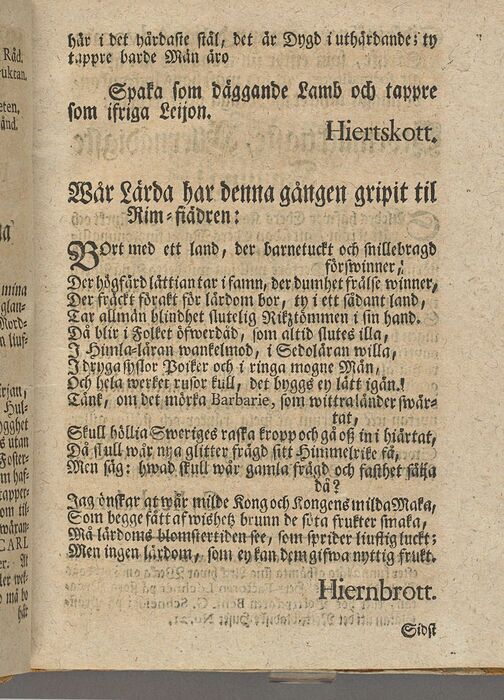 Råd.
ruktan.
eten,
ånd.
mina
glan-
Nord-
n liuf-
rjan,
Hul-
ygghet
s utan
Foster-
m haf-
tapper-
om til-
wäran-
CARL
er. At
ler wek-
d må bo
här
här i det hårdaste stål, det är Dygd i uthärdande; ty
tappre barde Män äro
Spaka som däggande Lamb och tappre
som ifriga Leijon.
Hiertskott.
Wår Lärda har denna gången gripit til
Rim-fiädren:
BOrt med ett land, der barnetuckt och snillebragd
förswinner,
Der högfärd lättian tar i famn, der dumhet frälse winner,
Der fräckt förakt för lärdom bor, ty i ett sådant land,
Tar allmän blindhet slutelig Rikztömmen i sin hand.
Då blir i Folket öfwerdåd, som altid slutes illa,
I Himla-läran wankelmod, i Sedoläran willa,
I dryga syslor Poiker och i ringa mogne Män,
Och hela werket rusor kull, det byggs ey lätt igän.
Tänk, om det mörka Barbarie, som wittra länder swär-
tat,
Skull höllja Sweriges raska kropp och gå oß in i hiärtat,
Då skull wår nya glitter frägd sitt Himmelrike få,
Men säg: hwad skull wår gamla frägd och fasthet sälja
då?
Jag önskar at wår milde Kong och Kongens milda Maka,
Som begge fått af wishetz brunn de söta frukter smaka,
Må lärdoms blomstertiden see, som sprider liuflig luckt;
Men ingen lärdom, som ey kan dem gifwa nyttig frukt.
Hiernbrott.
Sidst